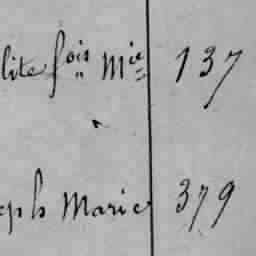 lite fois Mie 137
eph Marie 379